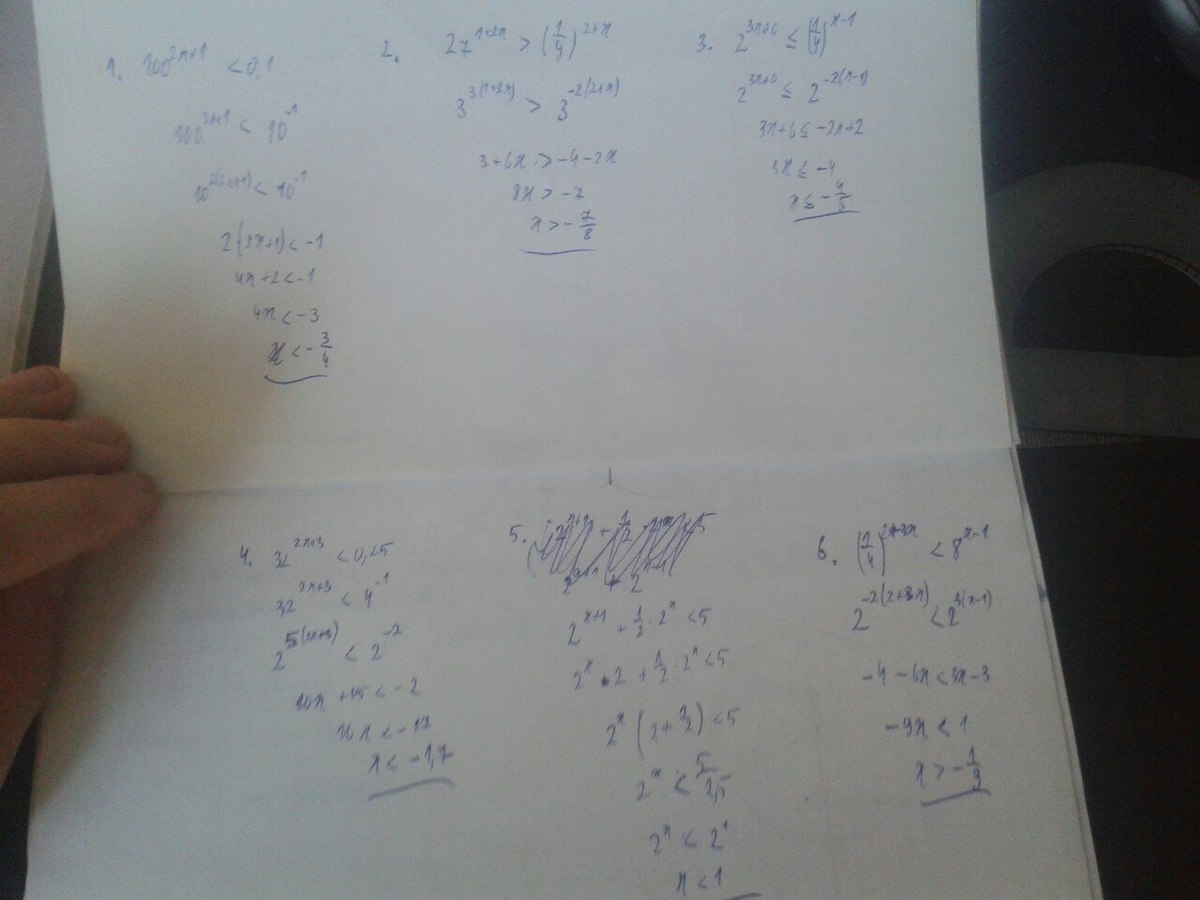 1. 100^{2x+1} < 0,1
100^{2x+1} < 10^{-1}
10^{2(2x+1)} < 10^{-1}
2(2x+1) < -1
4x+2 < -1
4x < -3
x < -\frac{3}{4}
2. 27^{1+2x} > (\frac{1}{9})^{2+x}
3^{3(1+2x)} > 3^{-2(2+x)}
3+6x > -4-2x
8x > -7
x > -\frac{7}{8}
3. 2^{3x+6} ≤ (\frac{1}{4})^{x-1}
2^{3x+6} ≤ 2^{-2(x-1)}
3x+6 ≤ -2x+2
5x ≤ -4
x ≤ -\frac{4}{5}
4. 32^{2x+3} < 0,25
32^{2x+3} < 4^{-1}
2^{5(2x+3)} < 2^{-2}
10x +15 < -2
10x < -17
x < -1,7
5.
2^{x+1} + \frac{1}{2} · 2^{x} < 5
2^{x} · 2 + \frac{1}{2} · 2^{x} < 5
2^{x} (2+\frac{1}{2}) < 5
2^{x} < \frac{5}{2,5}
2^{x} < 2^{1}
x < 1
6. (\frac{1}{4})^{2+3x} < 8^{x-1}
2^{-2(2+3x)} < 2^{3(x-1)}
-4 - 6x < 3x - 3
-9x < 1
x > -\frac{1}{9}